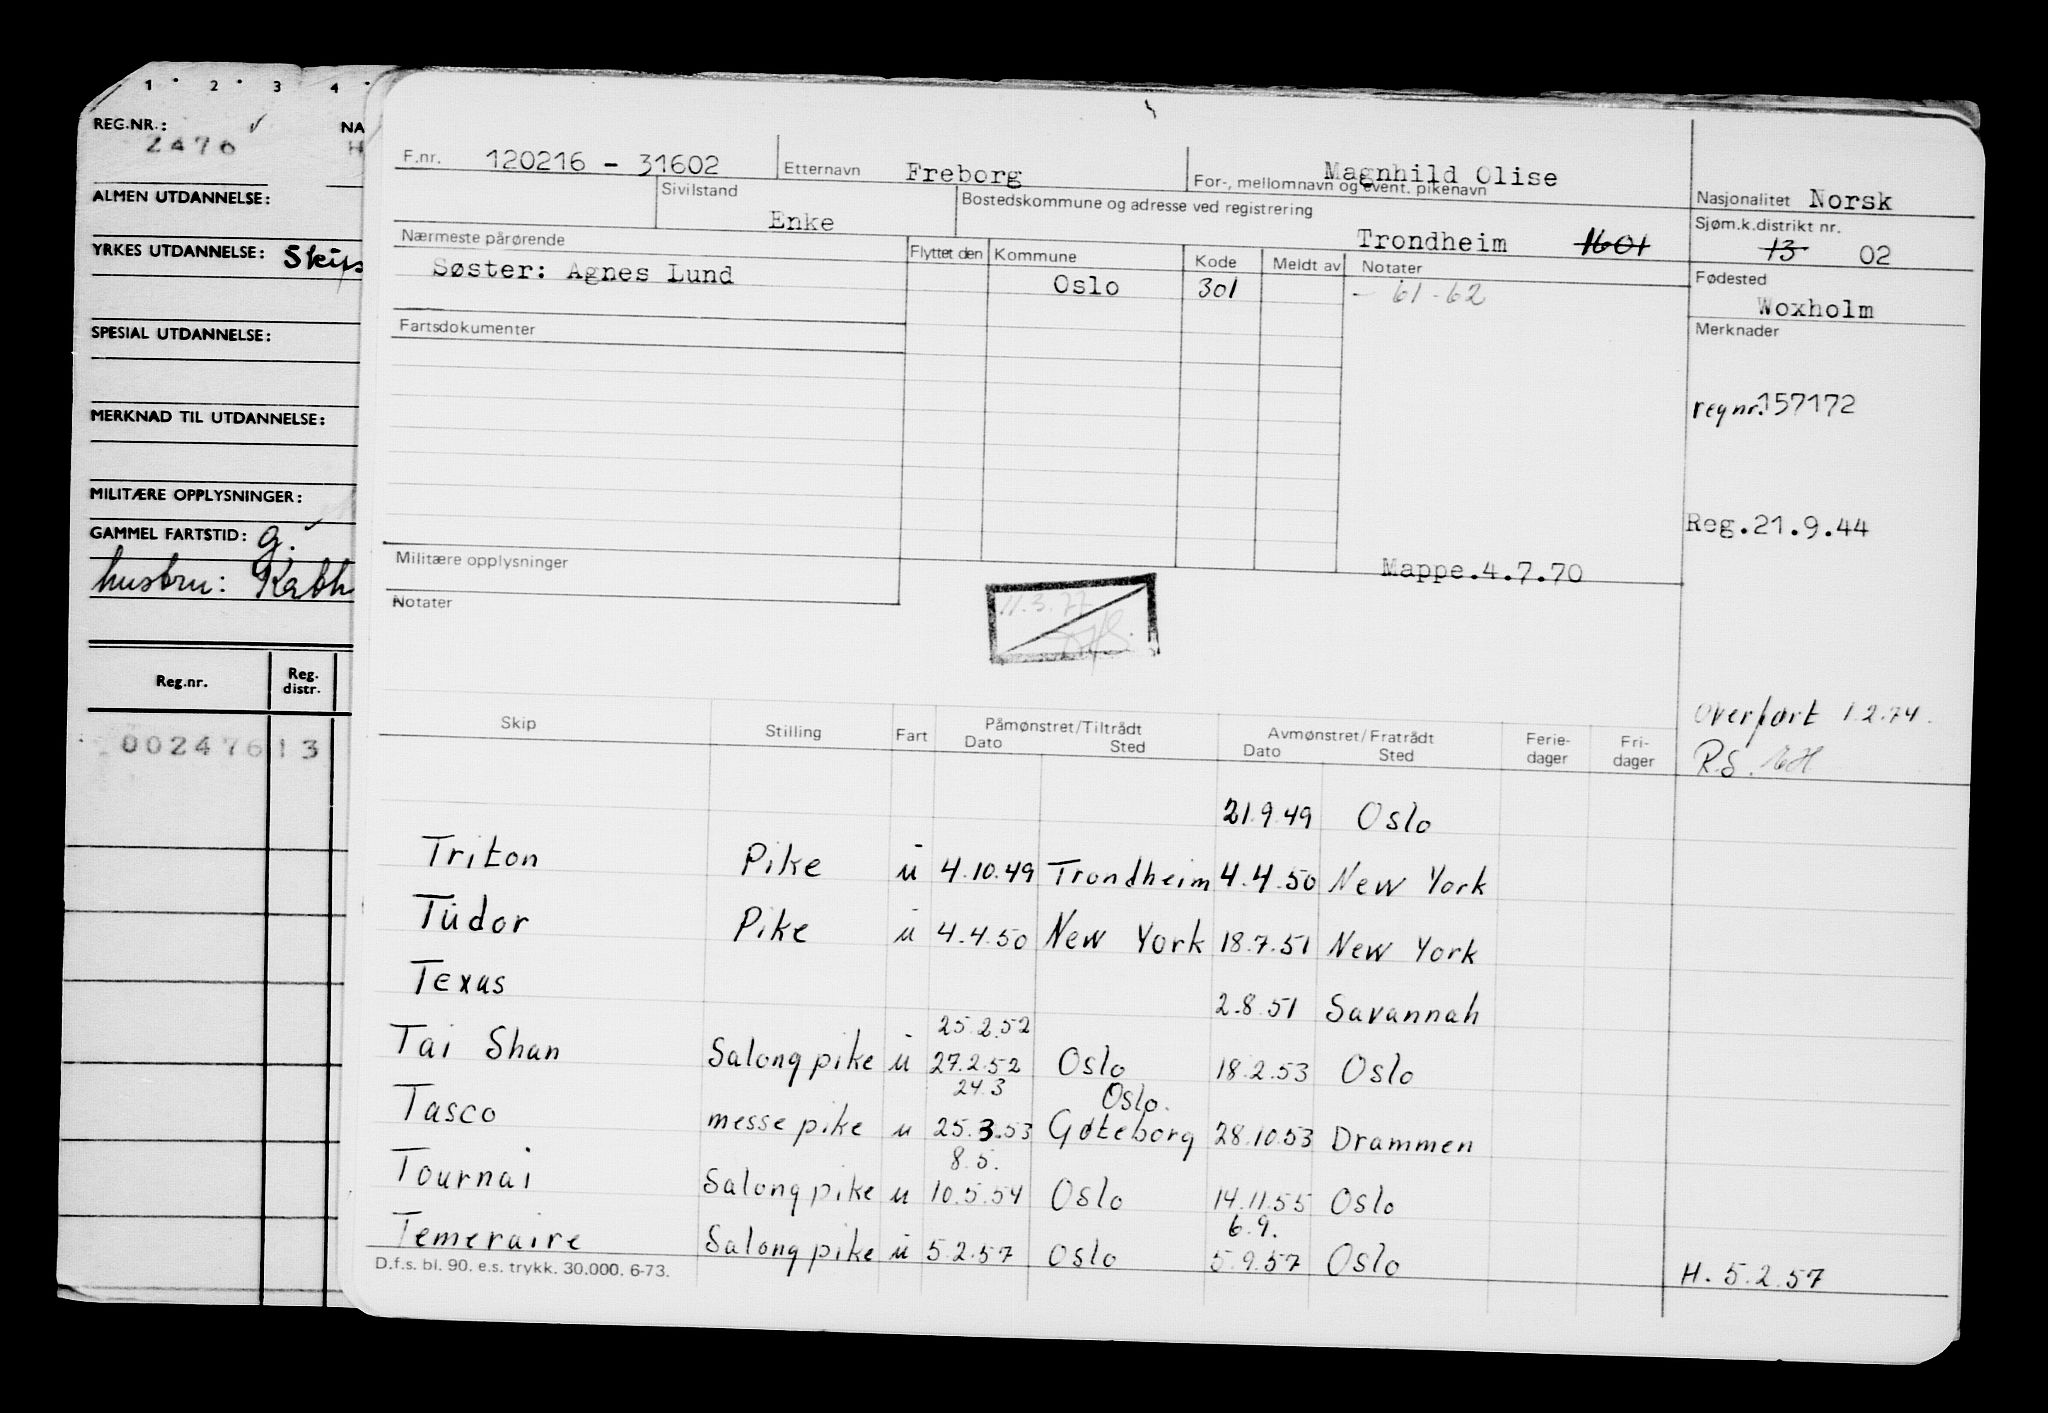 1 2 3 4
REG.NR.: 2470
NA
H
ALMEN UTDANNELSE:
YRKES UTDANNELSE: Skips
SPESIAL UTDANNELSE:
MERKNAD TIL UTDANNELSE:
MILITÆRE OPPLYSNINGER:
GAMMEL FARTSTID: g.
husbru: Kabh
Reg.nr. Reg. distr.
00247613
F.nr. 120216 - 31602 Etternavn Freborg For-, mellomnavn og event. pikenavn Magnhild Olise Nasjonalitet Norsk
Sivilstand Enke Bostedskommune og adresse ved registrering Trondheim 1601 Sjøm.k.distrikt nr. 13 02
Nærmeste pårørende Flyttet den Kommune Kode Meldt av Notater Fødested
Søster: Agnes Lund Oslo 301 - 61-62 Woxholm
Fartsdokumenter Merknader
regnr. 157172
Reg. 21.9.44
Militære opplysninger Mappe. 4.7.70
Notater 11.3.77
overført 1.2.74.
R.S.
Skip Stilling Fart Påmønstret/Tiltrådt Dato Sted Avmønstret/Fratrådt Dato Sted Ferie-dager Fri-dager
21.9.49 Oslo
Triton Pike u 4.10.49 Trondheim 4.4.50 New York
Tudor Pike u 4.4.50 New York 18.7.51 New York
Texas 2.8.51 Savannah
25.2.52
Tai Shan Salongpike u 27.2.52 Oslo 18.2.53 Oslo
24.3 Oslo.
Tasco messepike u 25.3.53 Gøteborg 28.10.53 Drammen
8.5.
Tournai Salongpike u 10.5.54 Oslo 14.11.55 Oslo
6.9.
Temeraire Salongpike u 5.2.57 Oslo 5.9.57 Oslo H. 5.2.57
D.f.s. bl. 90. e.s. trykk. 30.000. 6-73.